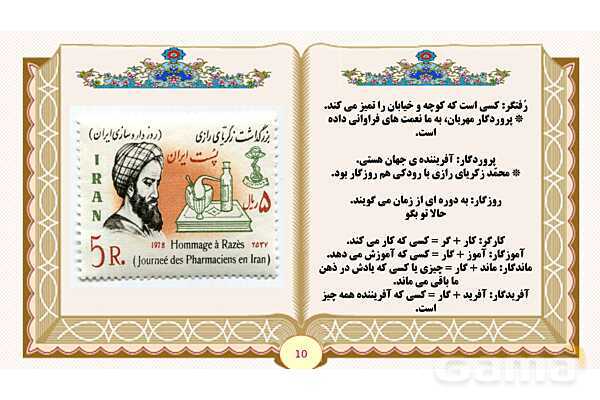 رُفتگر: کسی است که کوچه و خیابان را تمیز می کند.
* پروردگار مهربان، به ما نعمت های فراوانی داده
است.
پروردگار: آفریننده ی جهان هستی.
* محمّد زکریای رازی با رودکی هم روزگار بود.
روزگار: به دوره ای از زمان می گویند.
حالا تو بگو
کارگر: کار + گر = کسی که کار می کند.
آموزگار: آموز + گار = کسی که آموزش می دهد.
ماندگار: ماند + گار = چیزی یا کسی که یادش در ذهن
ما باقی می ماند.
آفریدگار: آفرید + گار = کسی که آفریننده همه چیز
است.
بزرگداشت زکریای رازی (روز داروسازی ایران)
پست ایران
IRAN
۵ ریال
5 R.
1978 Hommage à Razès ۲۵۳۷
(Journeé des Pharmaciens en Iran)
10
Gama